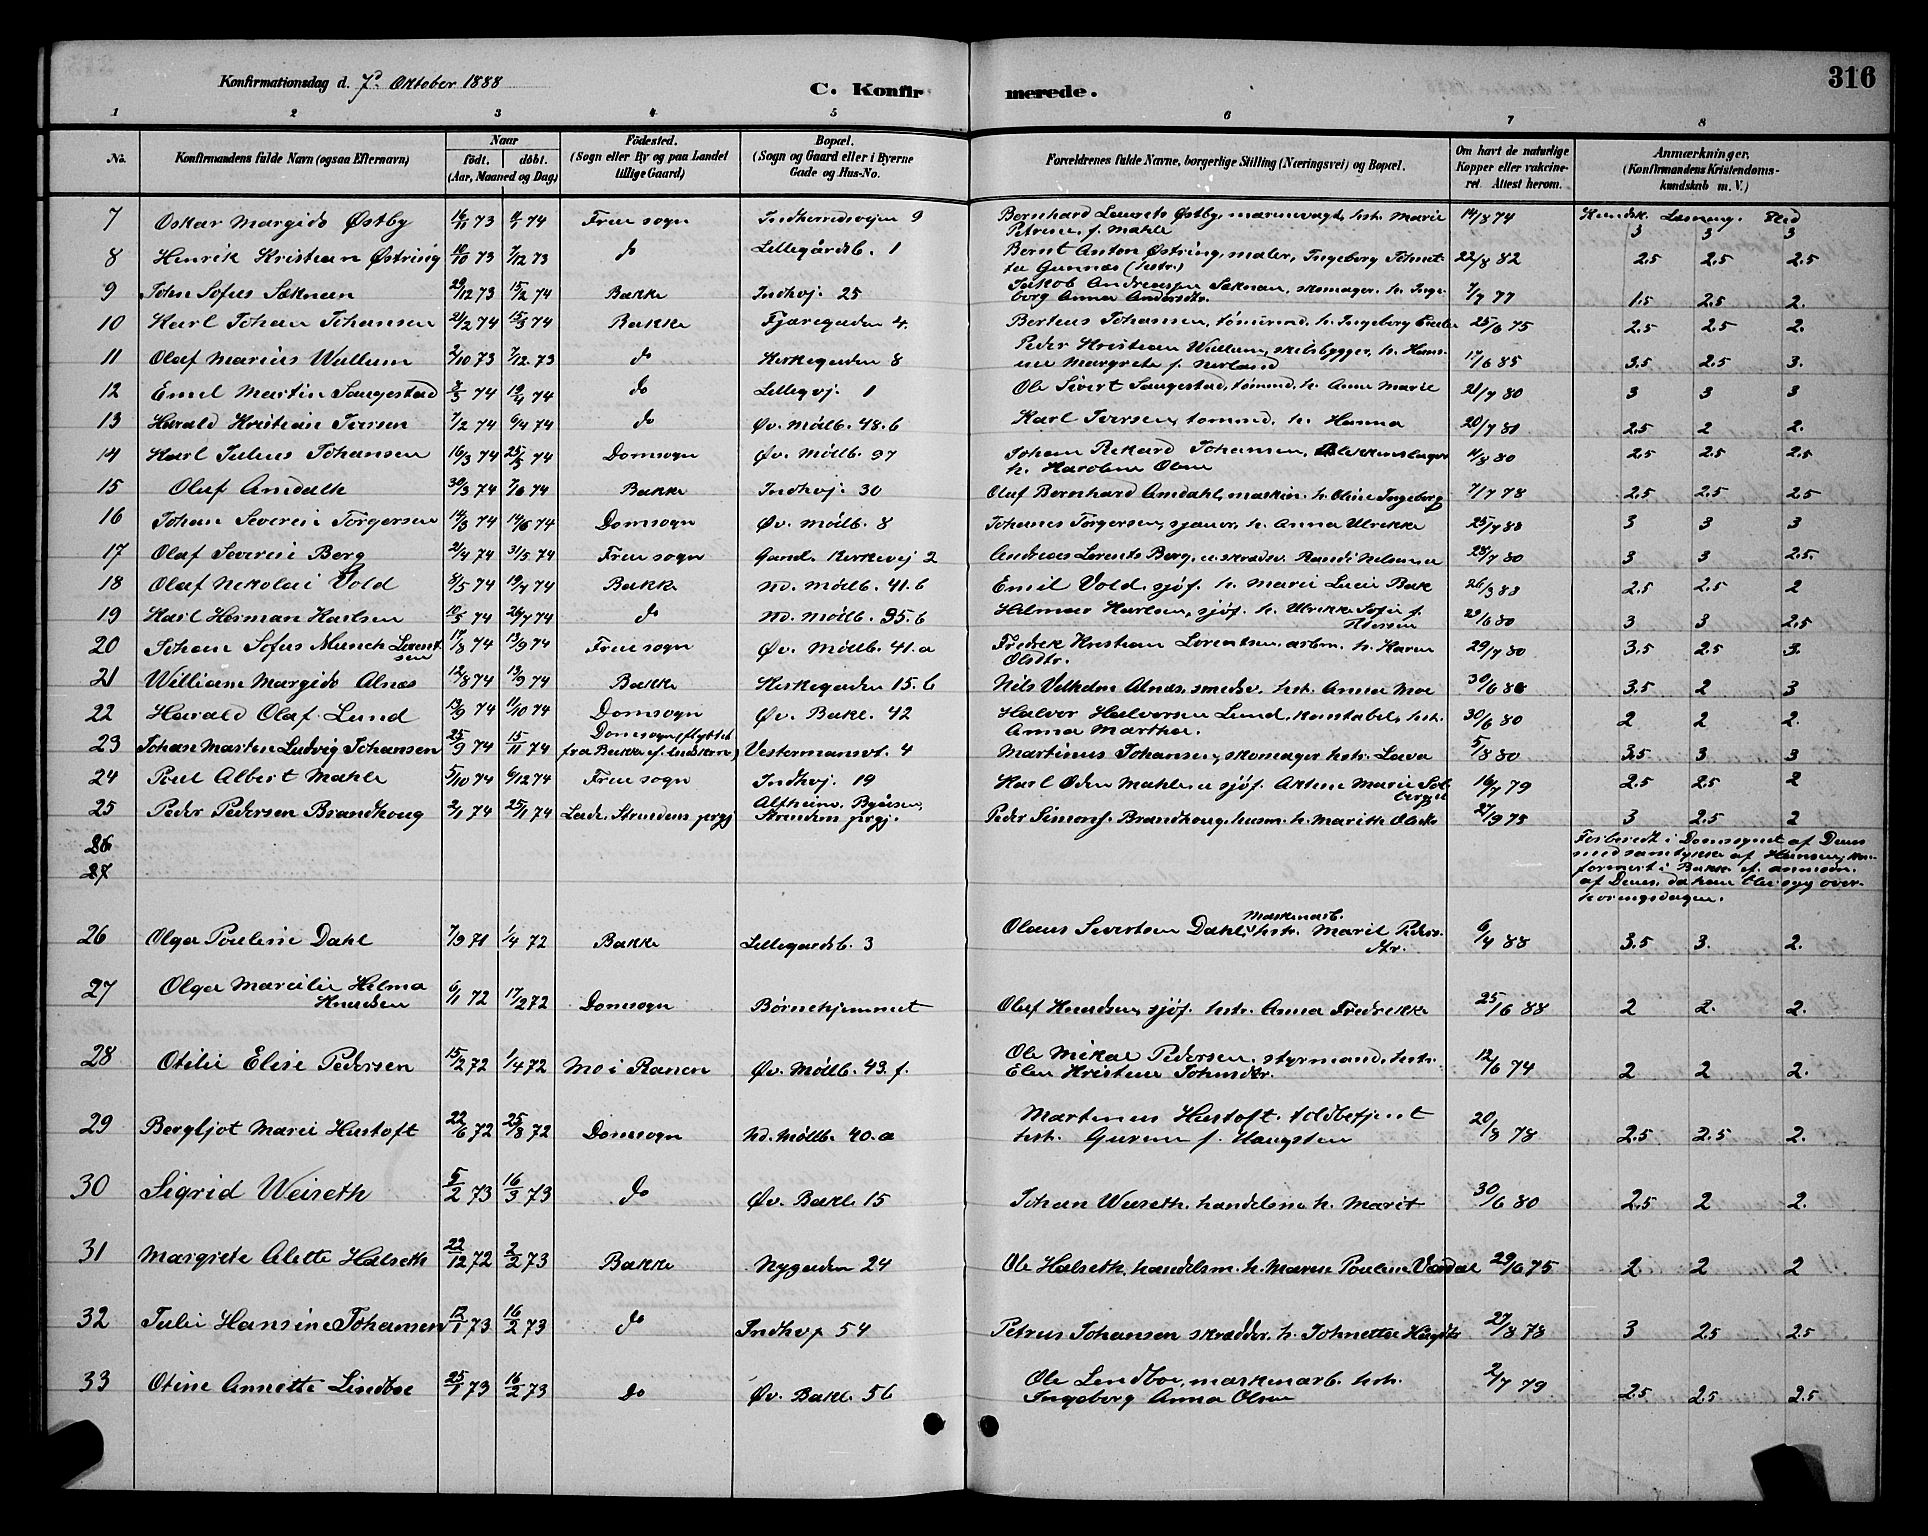 316
Konfirmationsdag d. 7d Oktober 1888
C. Konfirmerede.
1 2 3 4 5 6 7 8
No. Konfirmandens fulde Navn (ogsaa Efternavn) Naar født. døbt. (Aar, Maaned og Dag) Fødested. (Sogn eller By og paa Landet tillige Gaard) Bopæl. (Sogn og Gaard eller i Byerne Gade og Hus-No. Forældrenes fulde Navne, borgerlige Stilling (Næringsvei) og Bopæl. Om havt de naturlige Kopper eller vakcineret. Attest herom. Anmærkninger, (Konfirmandens Kristendomskundskab m. V.)
Kundsk. Læsning. Flid
7 Oskar Margido Østby 16/11 73 74 Frue sogn Indherredsvejen 9 Bernhard Laurits Østby, marinevagt, hstr. Marie Petrine f. Mahle 14/8 74 3 3 3
8 Henrik Kristian Østring 10/10 73 7/12 73 do Lillegårdsb. 1 Bernt Anton Østring, maler, Ingeborg Gunnæs (hstr.) 22/8 82 2.5 2.5 2.5
9 John Sofus Saknæn 29/12 73 15/2 74 Bakke Indhvj. 25 Jakob Andreasen Saknan, skomager, h. Ingeborg Anna Andersdtr. 7/7 77 1.5 2.5 2.
10 Karl Johan Johansen 21/2 74 15/3 74 Bakke Fjæregaden 4. Berteus Johansen, tømmermd, h. Ingeborg 25/6 75 2.5 2.5 2.
11 Olaf Marius Wullum 2/10 73 7/12 73 do Kirkegaden 8 Peder Kristian Wullum, skibsbygger, h. Hansine Margrete f. Nerland 17/6 85 3.5 2.5 3.
12 Emil Martin Saugestad 8/3 74 19/4 74 do Lillegvj. 1 Ole Sivert Saugestad, tømmd, h. Anne Marie 21/7 80 3 3 3
13 Harald Kristian Iversen 7/2 74 6/4 74 do Øv. Møllb. 48.b Karl Iversen, tømmd, h. Hanna 20/7 81 2.5 2 2.
14 Karl Julius Johansen 16/3 74 25/5 74 Domsogn Øv. Møllb. 97 Johan Rikard Johansen, Blikkenslager h. Karoline Olsen 11/8 80 2.5 2.5 2.5
15 Olaf Amdalh 30/3 74 7/6 74 Bakke Indhvj. 30 Olaf Bernhard Amdahl, maskin. h. Oline Ingeborg 7/7 78 2.5 2.5 2.5
16 Johan Severin Torgersen 14/3 74 14/6 74 Domsogn Øv. Møllb. 8 Johanes Torgersen, sjauer, h. Anna Ulrikke 25/7 88 3 3 3
17 Olaf Severin Berg 2/4 74 31/5 74 Frue sogn Gaml. Kirkevej 2 Andreas Lorents Berg, skræder. Randi Nelsena 28/7 80 3 3 2.5.
18 Olaf Nikolai Vold 3/5 74 19/7 74 Bakke Nd. Møllb. 41.b Emil Vold, sjøf. h. Marie Lucie Bak 26/3 83 2.5 2.5 2
19 Karl Herman Karlsen 10/5 74 26/7 74 do Nd. Møllb. 35.b Helmar Karlsen, sjøf. h. Ulrikke Sofie f. 29/6 80 3 3 2.5
20 Johan Sofus Munch Lorentsen 17/8 74 13/9 74 Frue sogn Øv. Møllb. 41.a Fredrik Kristian Lorentsen, arbm. h. Karen Olsdtr. 29/7 80 3.5 2.5 3.
21 William Margido Alnæs 12/8 74 13/9 74 Bakke Kirkegaden 15.b Nils Vilhelm Alnæs, smedsv. hstr. Anna Moe 30/6 80 3.5 2 3
22 Harald Olaf Lund 13/9 74 11/10 74 Domsogn Øv. Bakl. 42 Halvor Halvorsen Lund, konstabel, hstr. Anna Marthea. 30/6 80 2 2 2.
23 Johan Martin Ludvig Johansen 25/9 74 15/11 74 Domsogn (flyttet fra Bakke ef. indskrivn) Vestermansvt. 4 Martinus Johansen, skomager hstr. Lava 5/8 80 3.5 3 3
24 Poul Albert Mahle 5/10 74 6/12 74 Frue sogn Indhvj. 19 Karl Oden Mahle, sjøf. Aktine Marie Solberget 16/7 79 2.5 2.5 2
25 Peder Pedersen Brandhoug 2/1 74 25/1 74 Lade, Strindens prgj Altheim, Byåsen, Strindens prgj. Peder Simonf. Brandhoug, husm. h. Marith Olsdtr 27/9 75 3 2.5 2
26
27
Forberedt i Domsognet af Denes med samtykke af Hansen, konfirmert i Bakke ef. anmodn. af Denes, da han blev syg overhøringsdagen.
26 Olga Pouline Dahl 7/9 71 1/4 72 Bakke Lillegaardsb. 3 Olaus Severtsen Dahl, maskinarb. hstr. Marit Pedersdtr. 6/4 88 3.5 3. 2.
27 Olga Marcilie Helma Knudsen 6/1 72 17/2 72 Domsogn Børnehjemmet Olaf Knudsen, sjøf. hstr. Anna Fredrikke 25/6 88 2 2. 2.
28 Otilie Elise Pedersen 15/2 72 1/4 72 Mo i Ranen Øv. Møllb. 43.f. Ole Mikal Pedersen, styrmand, hstr. Elen Kristine Johnsdtr. 12/6 74 2 2 2.
29 Bergljot Marie Hustoft 22/6 72 25/8 72 Domsogn Nd. Møllb. 40.a Martinus Hustoft, toldbetjent hstr. Gurine f. Haugsten 20/8 78 2.5 2.5 2.
30 Sigrid Weiseth 5/2 73 16/3 73 do Øv. Bakl. 15 Johan Weiseth, handelsm. h. Marit 30/6 80 2.5 2 2.
31 Margrete Alette Halseth 22/12 72 2/2 73 Bakke Nygaden 24 Ole Halseth, handelsm. h. Maren Pouline Værdal 29/6 75 2 2 2
32 Julie Hansine Johansen 12/1 73 16/2 73 do Indhvj 54 Petrus Johansen skrædder, h. Johnette 27/8 78 3 2.5 2.5
33 Otine Annette Lindboe 25/1 73 16/2 73 do Øv. Bakl. 56 Ole Lindboe, maskinarb. hstr. Ingeborg Anna Olsen 2/7 79 2.5 2.5 2.5